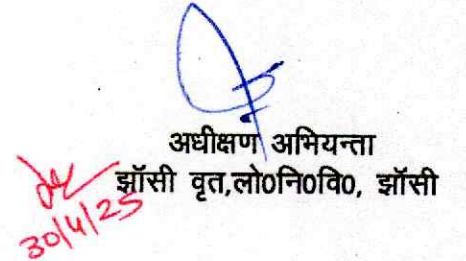 अधीक्षण अभियन्ता
झॉसी वृत,लो0नि0वि0, झॉसी
30/4/25